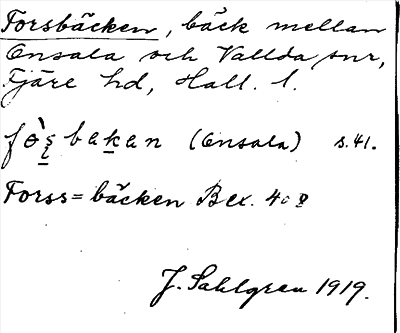 Forsbäcken, bäck mellan
Onsala och Vallda snr,
Fjäre hd, Hall. l.
(Onsala) s. 41.
Forss=bäcken Bex. 40
J. Sahlgren 1919.